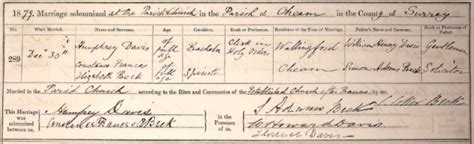 1879. Marriage solemnized at the Parish Church in the Parish of Cheam in the County of Surrey
No. When Married. Name and Surname. Age. Condition. Rank or Profession. Residence at the time of Marriage. Father's Name and Surname. Rank or Profession of Father.
289 Dec 30th Humphrey Davis of full age Bachelor Clerk in Holy Orders Wallingford Henry Davis Gentleman
Constance Frances Elizabeth Beck of full age Spinster Cheam Simon Adams Beck Solicitor
Married in the Parish Church according to the Rites and Ceremonies of the Established Church after Banns by me,
This Marriage was solemnized between us, Humphrey Davis
Constance Frances E Beck
in the Presence of us, S Adams Beck
W. Howard Davis
Davis